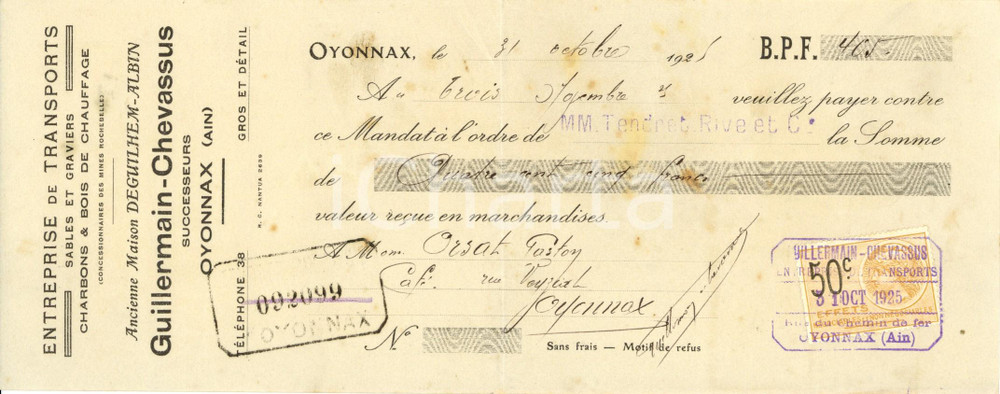 ENTREPRISE DE TRANSPORTS
SABLES ET GRAVIERS
CHARBONS & BOIS DE CHAUFFAGE
(CONCESSIONNAIRES DES MINES ROCHEBELLE)
Ancienne Maison DEGUILHEM-ALBIN
Guillermain-Chevassus
SUCCESSEURS
OYONNAX (AIN)
TÉLÉPHONE 38 GROS ET DÉTAIL
R. C. NANTUA 2639
OYONNAX, le 31 octobre 1925 B.P.F. 405
Au trois Novembre veuillez payer contre
ce Mandat à l'ordre de MM. Tendret, Rive et Cie la Somme
de Quatre cent cinq francs
valeur reçue en marchandises.
A Mons Orsat Gaston
Café rue Voyziat
Oyonnax
No
Sans frais — Motif de refus
092099
OYONNAX
GUILLERMAIN-CHEVASSUS
ENTREPRISE DE TRANSPORTS
31 OCT 1925
Rue du Chemin de fer
OYONNAX (Ain)
50c
EFFETS